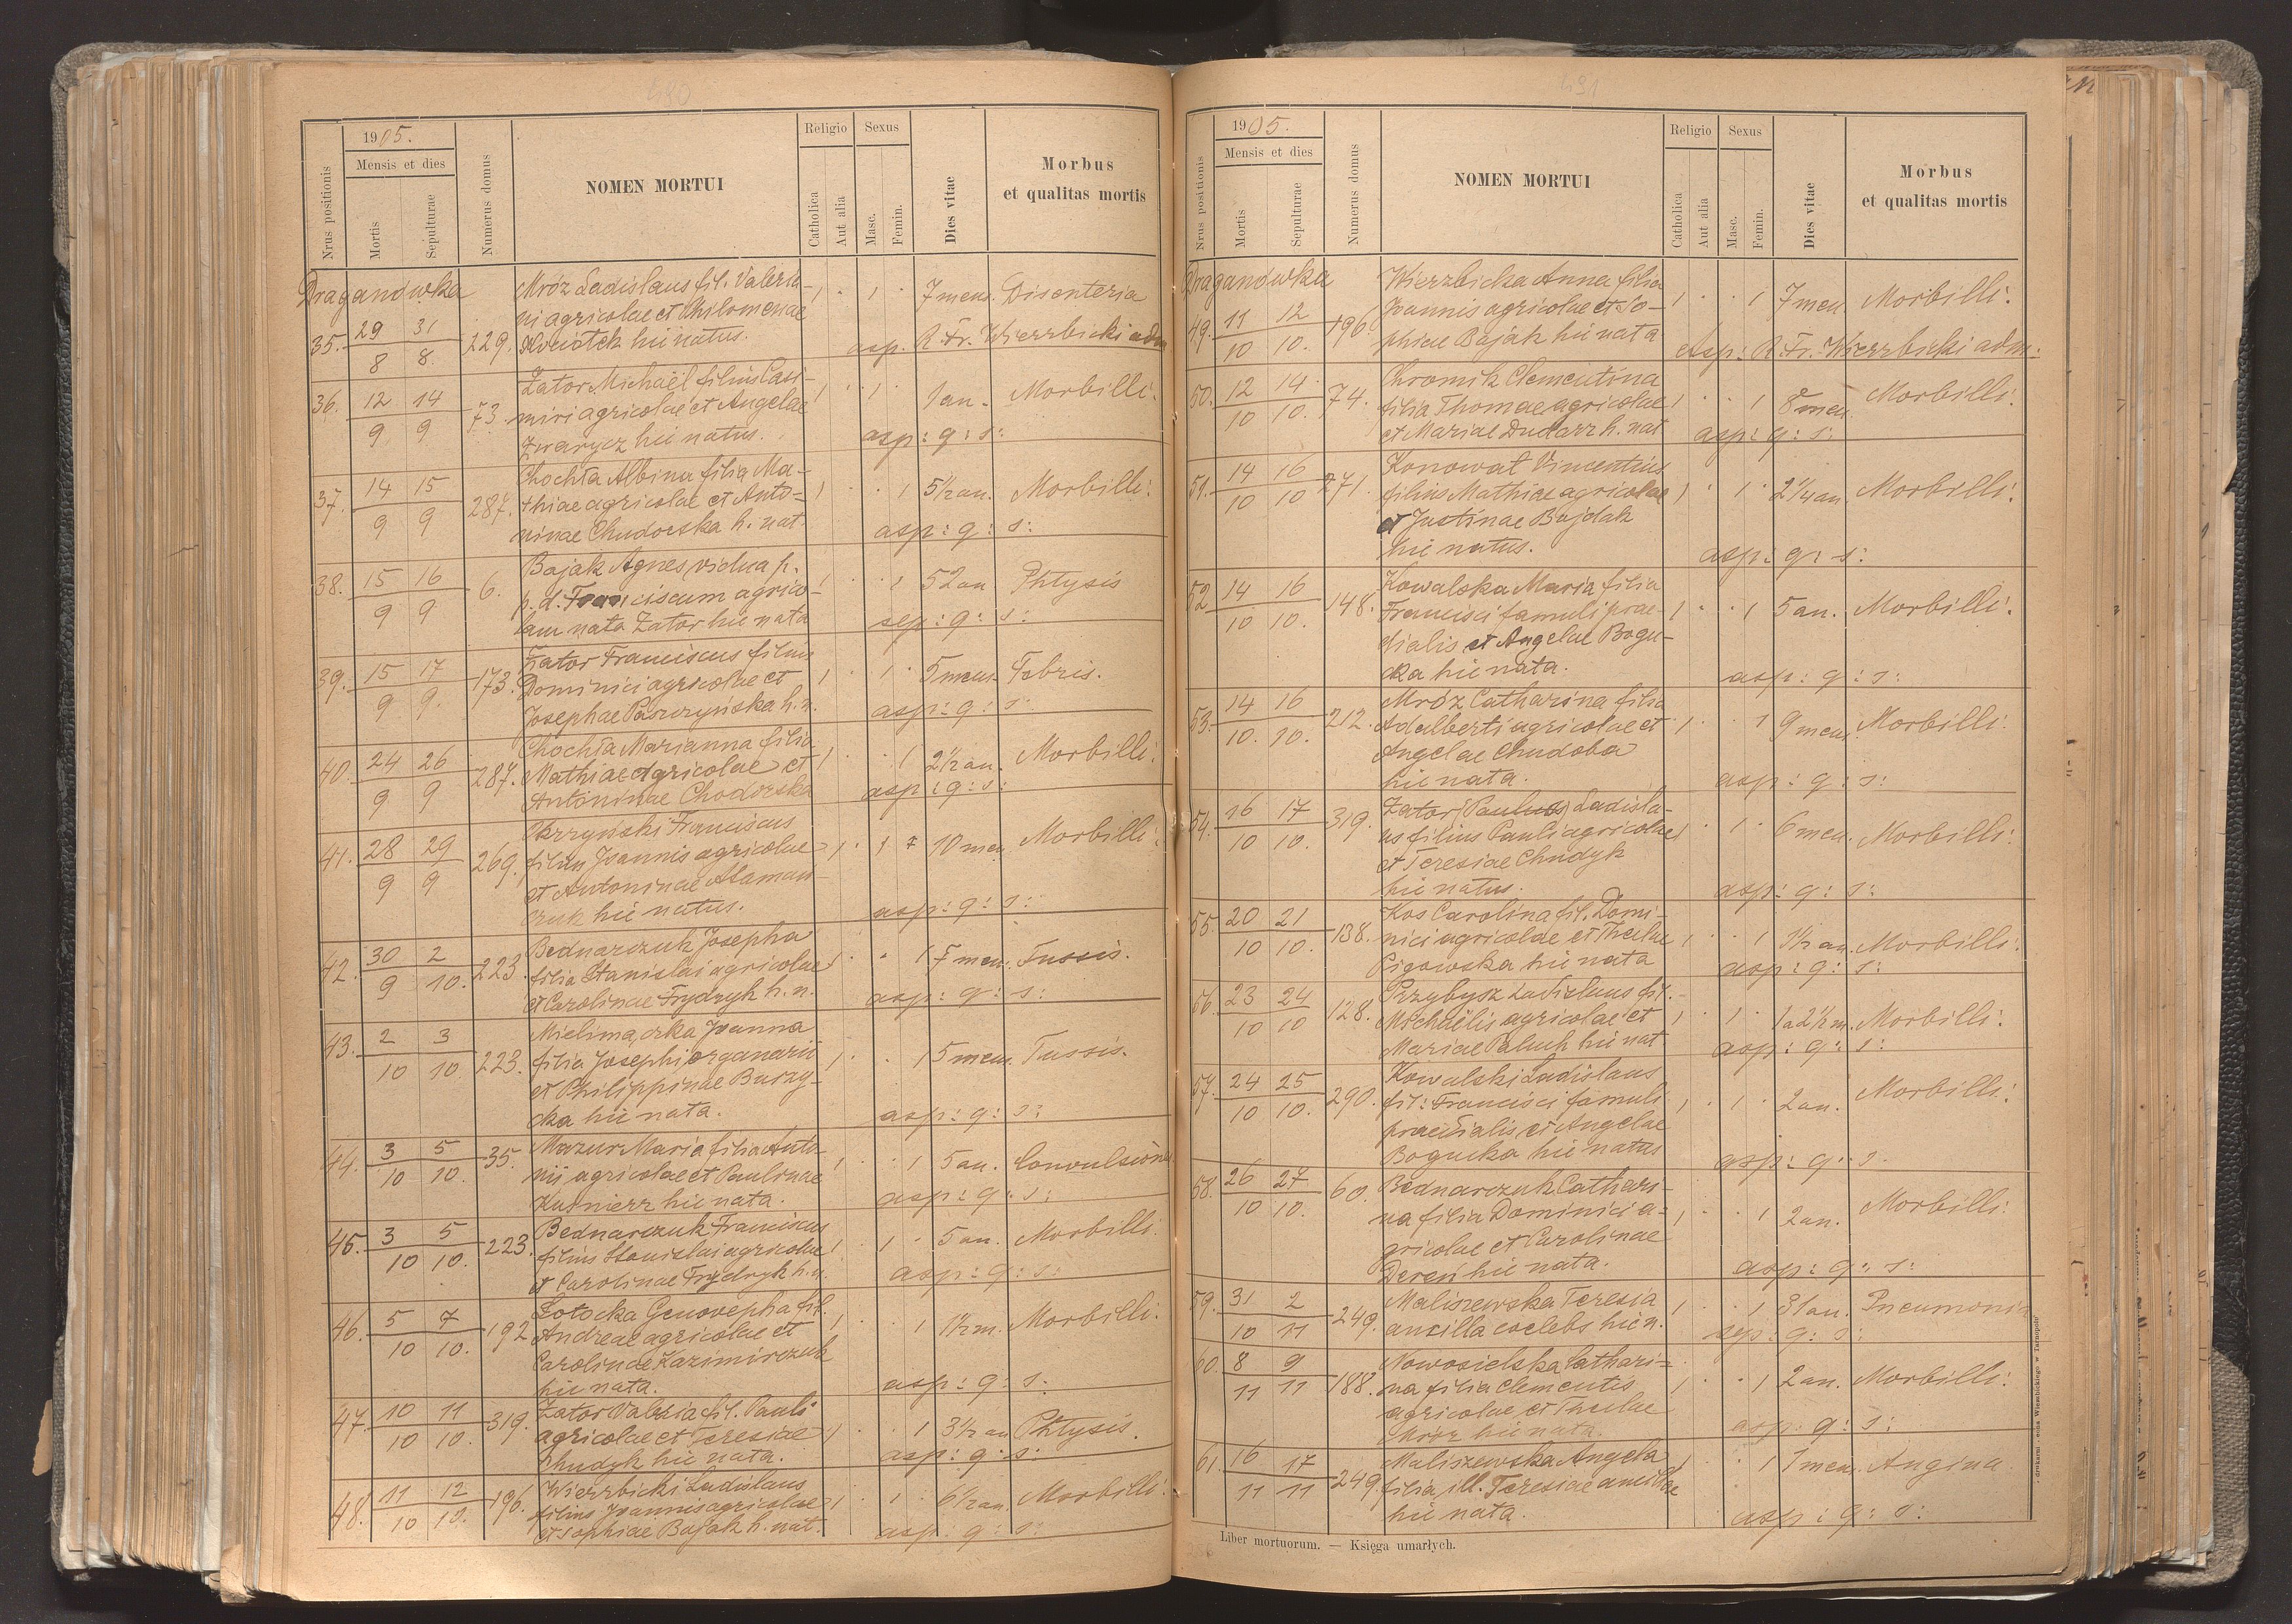 490
1905.
Nrus positionis
Mensis et dies
Mortis
Sepulturae
Numerus domus
NOMEN MORTUI
Religio
Catholica
Aut alia
Sexus
Masc.
Femin.
Dies vitae
Morbus
et qualitas mortis
Draganówka
35. 29/8 31/8. 229. Mróz Ladislaus fil. Valeria-
ni agricolae et Philomenae
Kwiatek hic natus.
1 . 1 . 7 mens. Disenteria
asp. R. Fr. Wierzbicki adm
36. 12/9 14/9 73. Zator Michaël filius Casi-
miri agricolae et Angelae
Zwarycz hic natus.
1 . 1 . 1 an. Morbilli.
asp: q: s:
37. 14/9 15/9 287. Chochła Albina filia Ma-
thiae agricolae et Anto-
ninae Chudorska h. nat.
1 . . 1 5½ an. Morbilli.
asp: q: s:
38. 15/9 16/9 6. Bajak Agnes, vidua p.
p. d. Franciscum agrico-
lam nata Zator hic nata
1 . . 1 52 an Phtysis
sep: q: s:
39. 15/9 17/9. 173. Zator Franciscus filius
Dominici agricolae et
Josephae Paszczyńska h. n.
1 . 1 . 5 mens. Febris.
asp: q: s:
40. 24/9 26/9 287. Chochła Marianna filia
Mathiae agricolae et
Antoninae Chodorska
1 . . 1 2½ an. Morbilli.
asp: q: s:
41. 28/9 29/9 269. Skrzyński Franciscus
filius Joannis agricolae
et Antoninae Ataman-
czuk hic natus.
1 . 1 10 men Morbilli.
asp: q: s:
42. 30/9 2/10. 223. Bednarczuk Josepha
filia Stanislai agricolae
et Carolinae Frydryk h. n.
1 . . 1 7 men. Tussis.
asp: q: s:
43. 2/10 3/10 223. Mielimączka Joanna
filia Josephi organarii
et Philippinae Burzy-
cka hic nata.
1 . . 1 5 mens. Tussis.
asp: q: s:
44. 3/10 5/10. 35. Mazur Maria filia Anto-
nii agricolae et Paulinae
Kuśnierz hic nata.
1 . . 1 5 an. Convulsiones
asp: q: s:
45. 3/10 5/10. 223. Bednarczuk Franciscus
filius Stanislai agricolae
et Carolinae Frydryk h. n.
1 . 1 . 5 an. Morbilli.
asp: q: s:
46. 5/10 7/10. 192 Łotocka Genovepha fil.
Andreae agricolae et
Carolinae Kazimirczuk
hic nata.
1 . . 1 1½ m. Morbilli.
asp: q: s:
47. 10/10 11/10. 319. Zator Valeria fil. Pauli
agricolae et Teresiae
Chudyk hic nata.
1 . . 1 3½ an Phtysis.
asp: q: s:
48. 11/10 12/10. 196. Wierzbicki Ladislaus
filius Joannis agricolae
et Sophiae Bajak h. nat.
1 . 1 . 6½ an. Morbilli.
asp: q: s:
491
1905.
Nrus positionis
Mensis et dies
Mortis
Sepulturae
Numerus domus
NOMEN MORTUI
Religio
Catholica
Aut alia
Sexus
Masc.
Femin.
Dies vitae
Morbus
et qualitas mortis
Draganówka
49. 11/10 12/10. 196. Wierzbicka Anna filia
Joannis agricolae et So-
phiae Bajak hic nata
1 . . 1 7 men Morbilli.
Asp: R. Fr. Wierzbicki adm.
50. 12/10 14/10. 74. Chromik Clementina
filia Thomae agricolae
et Mariae Dudarz h. nat
1 . . 1 8 men. Morbilli.
asp: q: s:
51. 14/10 16/10 271. Konował Vincentius
filius Mathiae agricolae
et Justinae Bajdak
hic natus.
1 . 1 . 2¼ an. Morbilli.
asp: q: s:
52 14/10 16/10. 148. Kowalska Maria filia
Francisci famuli prae-
dialis et Angelae Bogu-
cka hic nata.
1 . . 1 5 an. Morbilli.
asp: q: s:
53. 14/10. 16/10. 212. Mróz Catharina filia
Adalberti agricolae et
Angelae Chudoba
hic nata.
1 . . 1 9 mens. Morbilli.
asp: q: s:
54. 16/10 17/10. 319. Zator (Paulus) Ladisla-
us filius Pauli agricolae
et Teresiae Chudyk
hic natus.
1 . 1 . 6 men. Morbilli.
asp: q: s:
55. 20/10 21/10. 138. Kos Carolina fil. Domi-
nici agricolae et Theclae
Pigowska hic nata
1 . . 1 1½ an. Morbilli.
asp: q: s:
56. 23/10 24/10 128. Przybysz Ladislaus fil.
Michaëlis agricolae et
Mariae Paluch hic nat
1 . 1 . 1 a 2½ m. Morbilli.
asp: q: s:
57. 24/10 25/10. 290. Kowalski Ladislaus
fil: Francisci famuli
praedialis et Angelae
Bogucka hic natus
1 . 1 . 2 an. Morbilli.
asp: q: s.
58. 26/10 27/10. 60. Bednarczuk Cathari-
na filia Dominici a-
gricolae et Carolinae
Dereń hic nata.
1 . . 1 2 an. Morbilli.
asp: q: s:
59. 31/10 2/11 249. Maliszewska Teresia
ancilla coelebs hic n.
1 . . 1 31 an. Pneumonia
sep: q: s:
60. 8/11 9/11 188. Nowosielska Cathari-
na filia Clementis
agricolae et Theclae
Mróz hic nata.
1 . . 1 2 an. Morbilli.
asp: q: s:
61. 16/11 17/11 249. Maliszewska Angela
filia ill. Teresiae ancillae
hic nata.
1 . . 1 1 men. Angina
asp: q: s:
Liber mortuorum. — Księga umarłych.